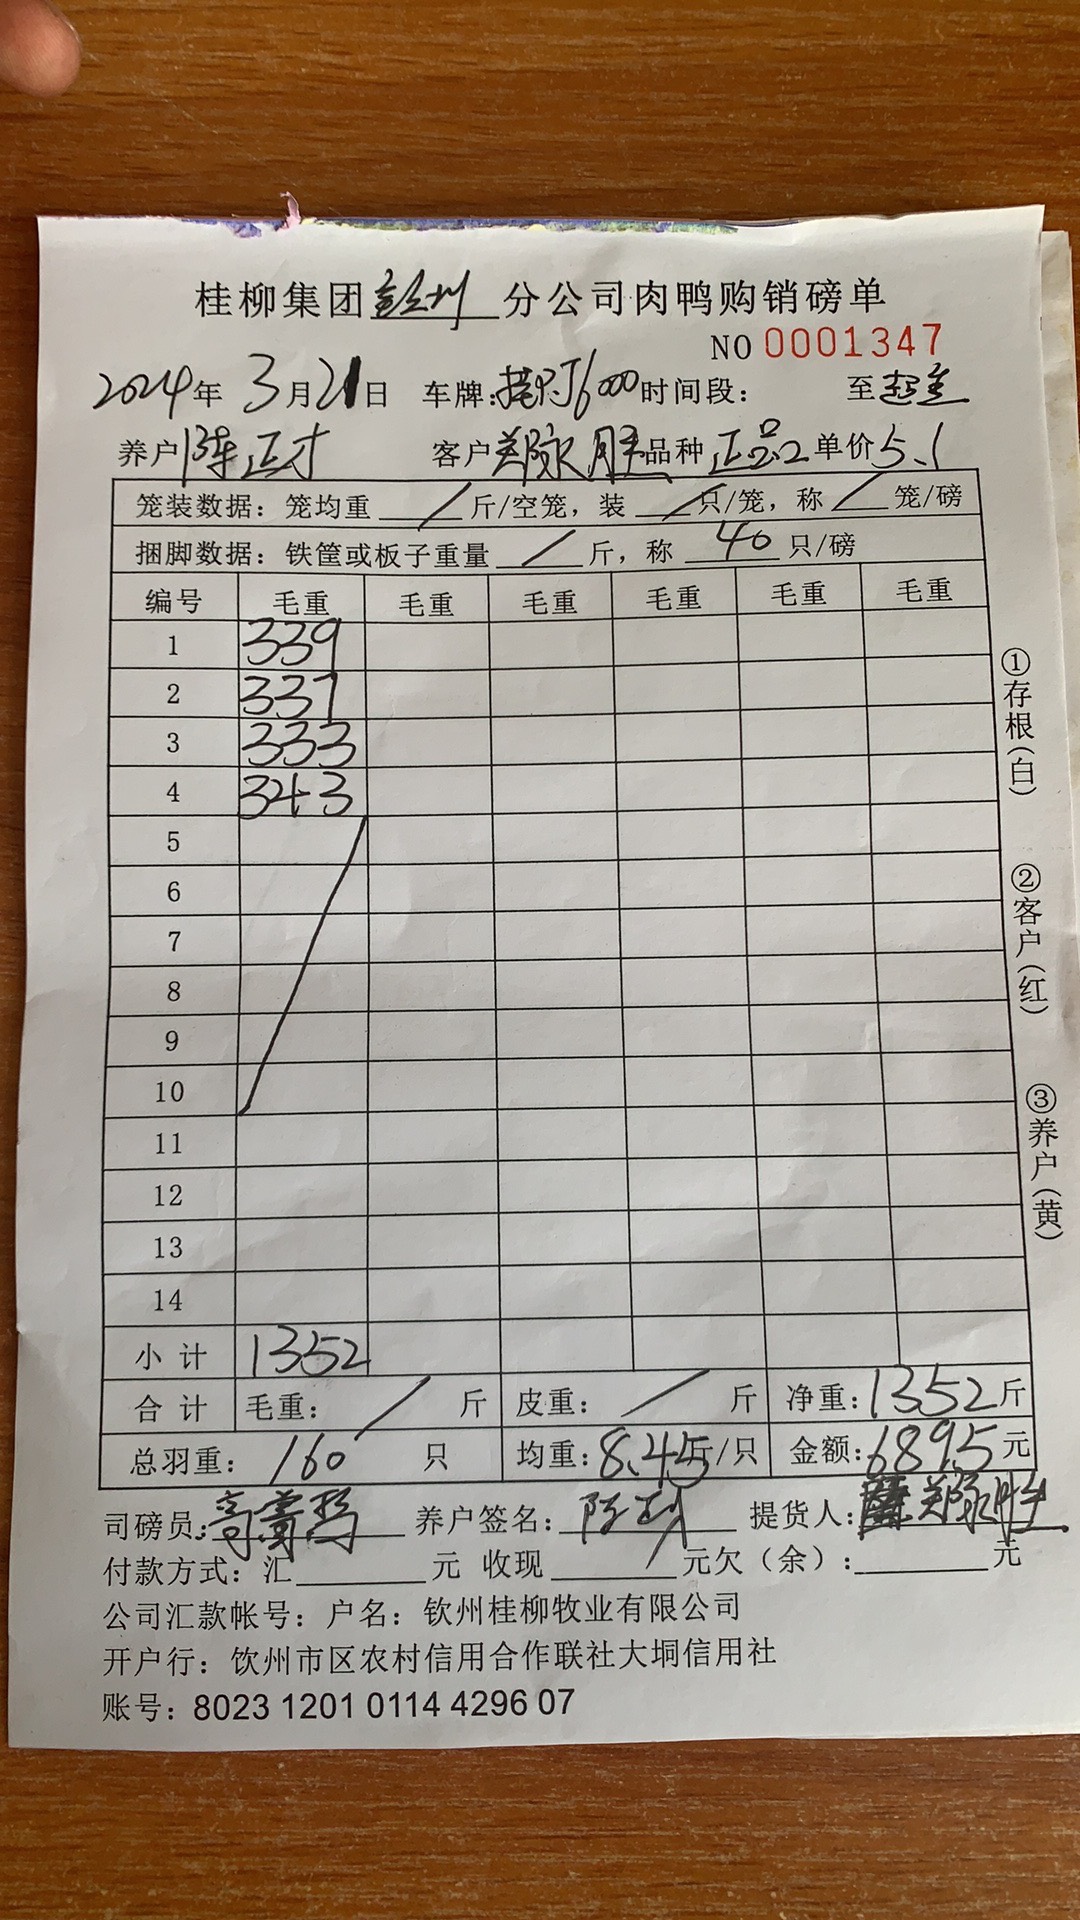 桂柳集团 彭州 分公司肉鸭购销磅单
NO 0001347
2024年 3月21日 车牌: 6000 时间段: 至
养户 陈正才 客户 郑家胜 品种 正品2 单价 5.1
笼装数据: 笼均重 / 斤/空笼, 装 / 只/笼, 称 / 笼/磅
捆脚数据: 铁筐或板子重量 / 斤, 称 40 只/磅
编号 毛重 毛重 毛重 毛重 毛重 毛重
1 339
2 337
3 333
4 343
5
6
7
8
9
10
11
12
13
14
小 计 1352
合 计 毛重: / 斤 皮重: / 斤 净重: 1352 斤
总羽重: 160 只 均重: 8.45 斤/只 金额: 6895 元
司磅员: 养户签名: 提货人: 郑家胜
付款方式: 汇 元 收现 / 元欠(余): 元
公司汇款帐号: 户名: 钦州桂柳牧业有限公司
开户行: 钦州市区农村信用合作联社大垌信用社
账号: 8023 1201 0114 4296 07
①存根(白)
②客户(红)
③养户(黄)